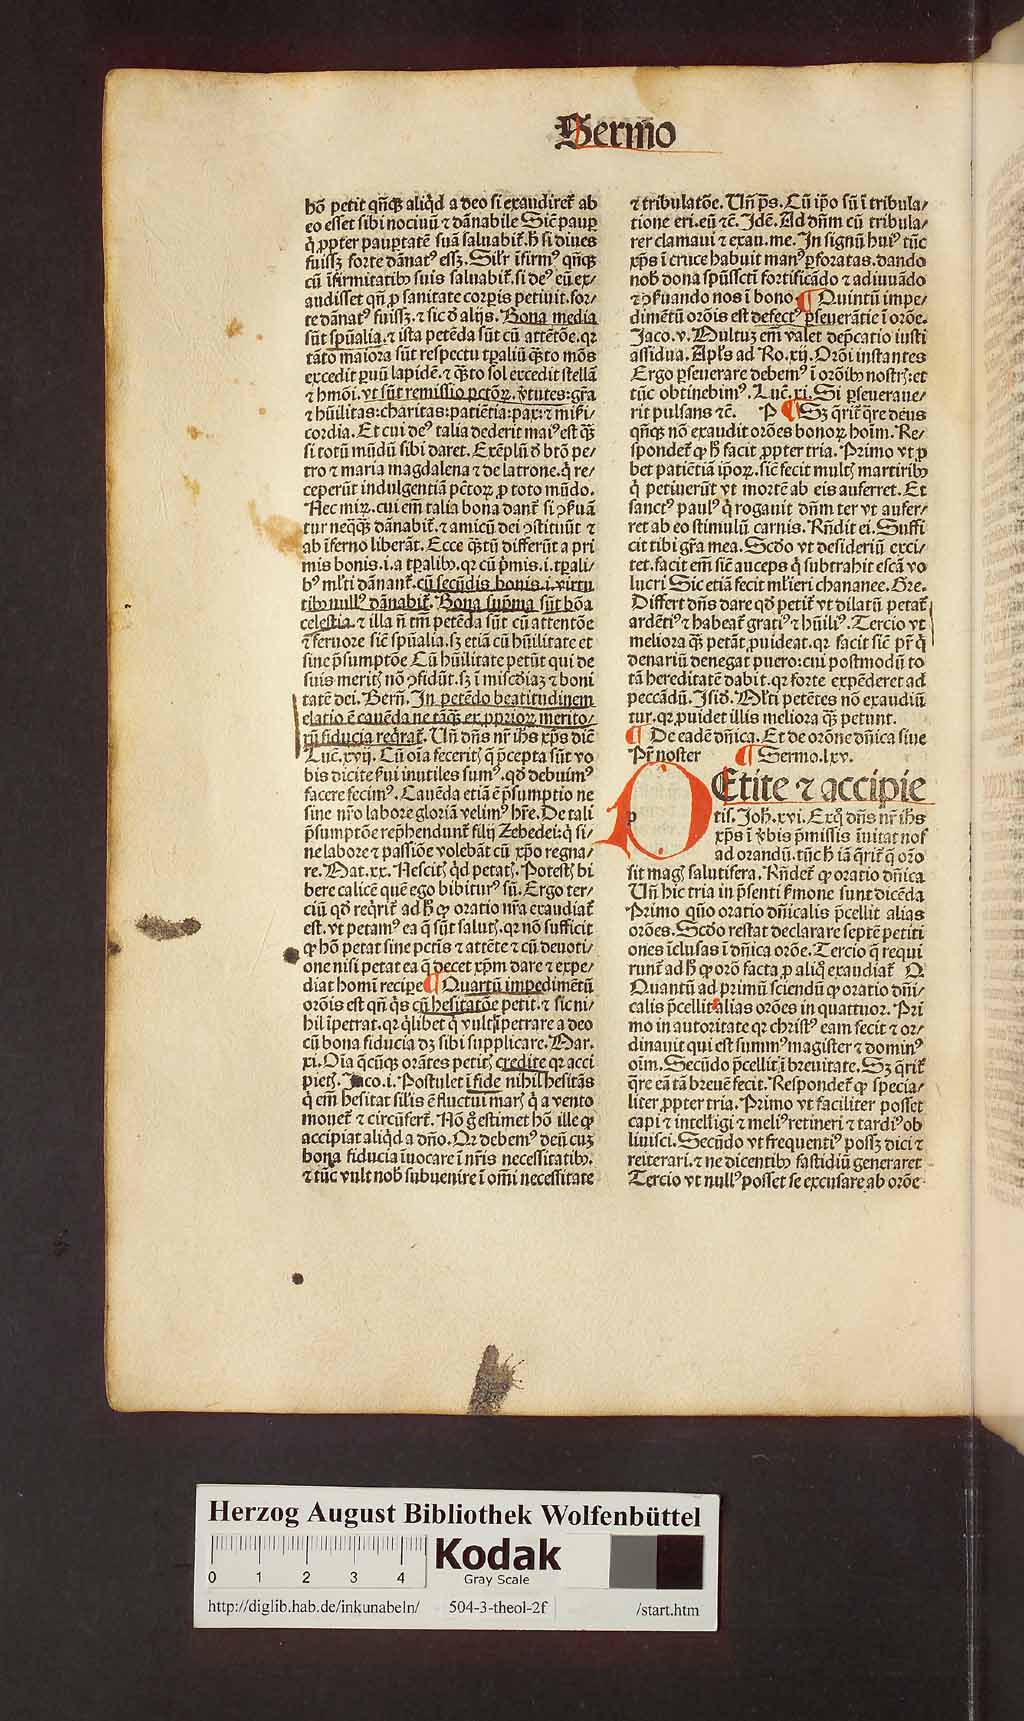 Sermo
hō petit qn̄qꝫ aliq̇d a deo si exaudireť ab
eo esset sibi nociuū ⁊ dānabile Sic̄ paup̄
q̇ ꝓpter paup̄tatē suā saluabiť. h̄ si diues
fuissꝫ forte dānatꝰ essꝫ. Sil'r īfirmꝰ qn̄qꝫ
cū īfirmitatibꝰ suis saluabiť. si deꝰ eū ex/
audisset qn̄ ꝓ sanitate corpis petiuit. for/
te dānatꝰ fuissꝫ. ⁊ sic d̄ alijs. Bona media
sūt spūalia. ⁊ ista petēda sūt cū attētōe. qr
tāto maiora sūt respectu tp̄aliū qꝫto mōs
excedit puū lapidē. ⁊ qꝫto sol excedit stellā
⁊ hmōi. vt sūt remissio pctōꝝ. v̄tutes: gr̄a
⁊ hūilitas: charitas: patiētia: pax: ⁊ mīsi
cordia. Et cui deꝰ talia dederit maiꝰ est qꝫ
si totū mūdū sibi daret. Exēplū d̄ btō pe/
tro ⁊ maria magdalena ⁊ de latrone. q̇ re/
ceperūt indulgentiā pctōꝝ ꝓ toto mūdo.
Nec miꝝ. cui em̄ talia bona danť si ꝯſuā
tur neqꝫ dānabiť. ⁊ amicū dei ꝯstituūt ⁊
ab īferno liberāt. Ecce qꝫtū differūt a pri
mis bonis. i. a tp̄alibꝰ. qr cū p̄mis. i. tp̄ali/
bꝰ ml'ti dānanť. cū secūdis bonis. i. virtu
tibꝰ nullꝰ dānabiť. Bona sup̄ma sūt bōa
celestia. ⁊ illa n̄ tm̄ petēda sūt cū attentōe
⁊ feruore sic̄ spūalia. sꝫ etiā cū hūilitate et
sine p̄sumptōe Cū hūilitate petūt qui de
suis meritꝭ nō ꝯfidūt. sꝫ ī misc̄diaꝫ ⁊ boni
tatē dei. Bern̄. In petēdo beatitudinem
elatio ē cauēda ne tāqꝫ ex ꝓprioꝝ merito/
rū fiducia reqrať. Vn̄ dn̄s nr̄ ihs xp̄s dic̄
Luc̄. xvij. Cū oīa feceritꝭ q̄ p̄cepta sūt vo
bis dicite ẜui inutiles sumꝰ. qd̄ debuimꝰ
facere fecimꝰ. Cauēda etiā ē p̄sumptio ne
sine nr̄o labore gloriā velimꝰ hr̄e. De tali
p̄sumptōe rep̄hendunť filij Zebedei: q̇ si/
ne labore ⁊ passiōe volebāt cū xp̄o regna/
re. Mat. xx. Nescitꝭ q̇d petatꝭ. Potestꝭ bi
bere calicē quē ego bibiturꝰ sū. Ergo ter/
ciū qd̄ reqriť ad h̄ ꝙ oratio nr̄a exaudiať
est. vt petamꝰ ea q̄ sūt salutꝭ. qr nō sufficit
ꝙ hō petat sine pctīs ⁊ attēte ⁊ cū deuoti/
one nisi petat ea q̄ decet xp̄m dare ⁊ expe/
diat homī recipe ¶ Quartū impedimētū
orōis est qn̄ q̇s cū hesitatōe petit. ⁊ sic ni/
hil īpetrat. qr q̇libet q̇ vult īpetrare a deo
cū bona fiducia dꝫ sibi supplicare. Mar.
xi. Oīa q̄cūqꝫ orātes petitꝭ credite qr acci
pietꝭ. Jaco. i. Postulet ī fide nihil hesitās
q̇ em̄ hesitat sil'is ē fluctui marꝭ q̇ a vento
moueť ⁊ circūferť. Nō g̊ estimet hō ille ꝙ
accipiat aliq̇d a dn̄o. Qr debemꝰ deū cuꝫ
bona fiducia īuocare ī nr̄is necessitatibꝰ.
⁊ tūc vult nob̄ subuenire ī omī necessitate
⁊ tribulatōe. Vn̄ p̄s. Cū ip̄o sū ī tribula/
tione eri. eū ⁊c̄. Idē. Ad dn̄m cū tribula/
rer clamaui ⁊ exau. me. In signū huiꝰ tūc
xp̄s ī cruce habuit manꝰ ꝑforatas. dando
nob̄ dona spūsscti fortificādo ⁊ adiuuādo
⁊ ꝯẜuando nos ī bono ¶ Quintū impe/
dimētū orōis est defectꝰ ꝑseuerātie ī orōe.
Jaco. v. Multuꝫ em̄ valet dep̄catio iusti
assidua. Apl's ad Ro. xij. Orōi instantes
Ergo ꝑseuerare debemꝰ ī orōibꝰ nostrꝭ: et
tūc obtinebimꝰ. Luc̄. xi. Si ꝑseueraue/
rit pulsans ⁊c̄. P ¶ Sꝫ q̇riť q̄re deus
qn̄qꝫ nō exaudit orōes bonoꝝ hoīm. Re/
spondeť ꝙ h̄ facit ꝓpter tria. Primo vt ꝓ
bet patiētiā ip̄oꝝ. sic̄ fecit multꝭ martiribꝰ
q̇ petiuerūt vt mortē ab eis auferret. Et
sanctꝰ paulꝰ q̇ rogauit dn̄m ter vt aufer/
ret ab eo stimulū carnis. Rn̄dit ei. Suffi
cit tibi gr̄a mea. Scd̄o vt desideriū exci/
tet. facit em̄ sic̄ auceps q̇ subtrahit escā vo
lucri Sic etiā fecit ml'ieri chananee. Gre.
Differt dn̄s dare qd̄ petiť vt dilatū petať
ardētiꝰ ⁊ habeať gratiꝰ ⁊ hūiliꝰ. Tercio vt
meliora qꝫ petāt ꝓuideat. qr facit sic̄ pr̄ q̇
denariū denegat puero: cui postmodū to
tā hereditatē dabit. qr forte expēderet ad
peccādū. Isid̄. Ml'ti petētes nō exaudiū
tur. qr ꝓuidet illis meliora qꝫ petunt.
¶ De eadē dn̄ica. Et de orōne dn̄ica siue
Pr̄ noster ¶ Sermo. lxv.
PEtite ⁊ accipie
tis. Joh̄. xvi. Exq̊ dn̄s nr̄ ihs
xp̄s ī v̄bis p̄missis īuitat nos
ad orandū. tūc h̄ iā q̇riť q̄ oro
sit magꝭ salutifera. Rn̄deť ꝙ oratio dn̄ica
Vn̄ hic tria in p̄senti ẜmone sunt dicēda
Primo quō oratio dn̄icalis p̄cellit alias
orōes. Scd̄o restat declarare septē petiti
ones īclusas ī dn̄ica orōe. Tercio q̄ requi
runť ad h̄ ꝙ orō facta ꝓ aliq̊ exaudiať Q
Quantū ad primū sciendū ꝙ oratio dn̄i/
calis p̄cellit alias orōes in quattuor. Pri
mo in autoritate qr christꝰ eam fecit ⁊ or/
dinauit qui est summꝰ magister ⁊ dominꝰ
oīm. Secūdo p̄cellit ī breuitate. Sꝫ q̇riť
q̄re eā tā breuē fecit. Respondeť ꝙ specia/
liter ꝓpter tria. Primo vt faciliter posset
capi ⁊ intelligi ⁊ meliꝰ retineri ⁊ tardiꝰ ob
liuisci. Secūdo vt frequentiꝰ possꝫ dici ⁊
reiterari. ⁊ ne dicentibꝰ fastidiū generaret
Tercio vt nullꝰ posset se excusare ab orōe
Herzog August Bibliothek Wolfenbüttel
0 1 2 3 4
Kodak
Gray Scale
http://diglib.hab.de/inkunabeln/ 504-3-theol-2f /start.htm